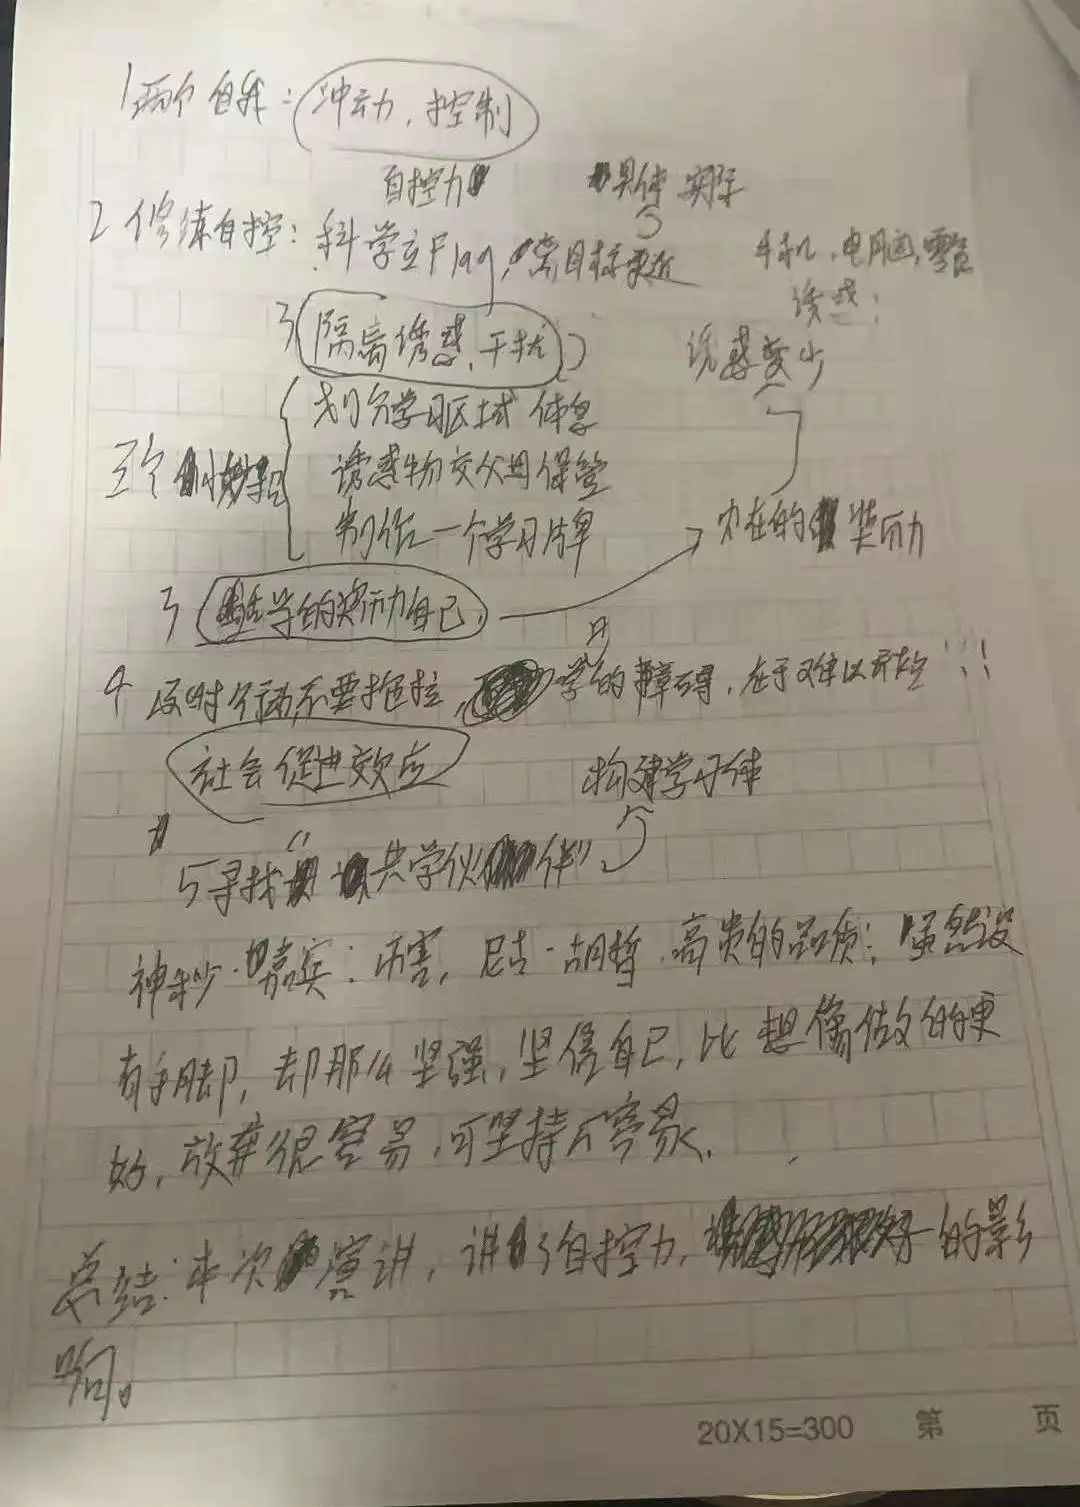 1两个自我：冲动，控制
自控力 具体 实际
2修练自控：科学立Flag，目标更近
手机，电脑，零食
诱惑：
3隔离诱惑，干扰
诱惑变少
划分学习区域 休息
三个小妙招 诱惑物交父母保管
制作一个学习牌
内在的奖励
3 科学的奖励自己，
4 及时行动不要拖拉，学习的障碍，在于难以开始！！！
社会促进效应
构建学习体
5寻找“共学伙伴”
神秘嘉宾：厉害，尼古·胡哲，高贵的品质：虽然没
有手脚，却那么坚强，坚信自己，比想像做的更
好，放弃很容易，可坚持不容易，
总结：本次演讲，讲了自控力，的影
响。
20X15=300 第 页